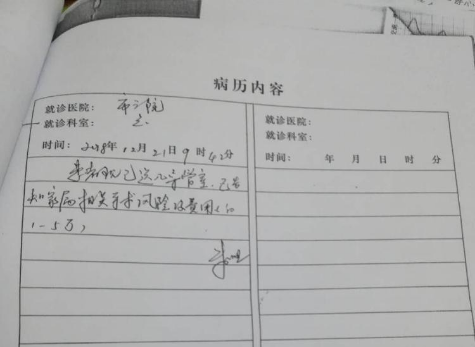 病历内容
就诊医院： 市二院
就诊科室：
时间： 2018年 12月 21日 9 时 42分
患者现已送入导管室，已告
知家属相关手术风险及费用（约
1-5万）
就诊医院：
就诊科室：
时间： 年 月 日 时 分